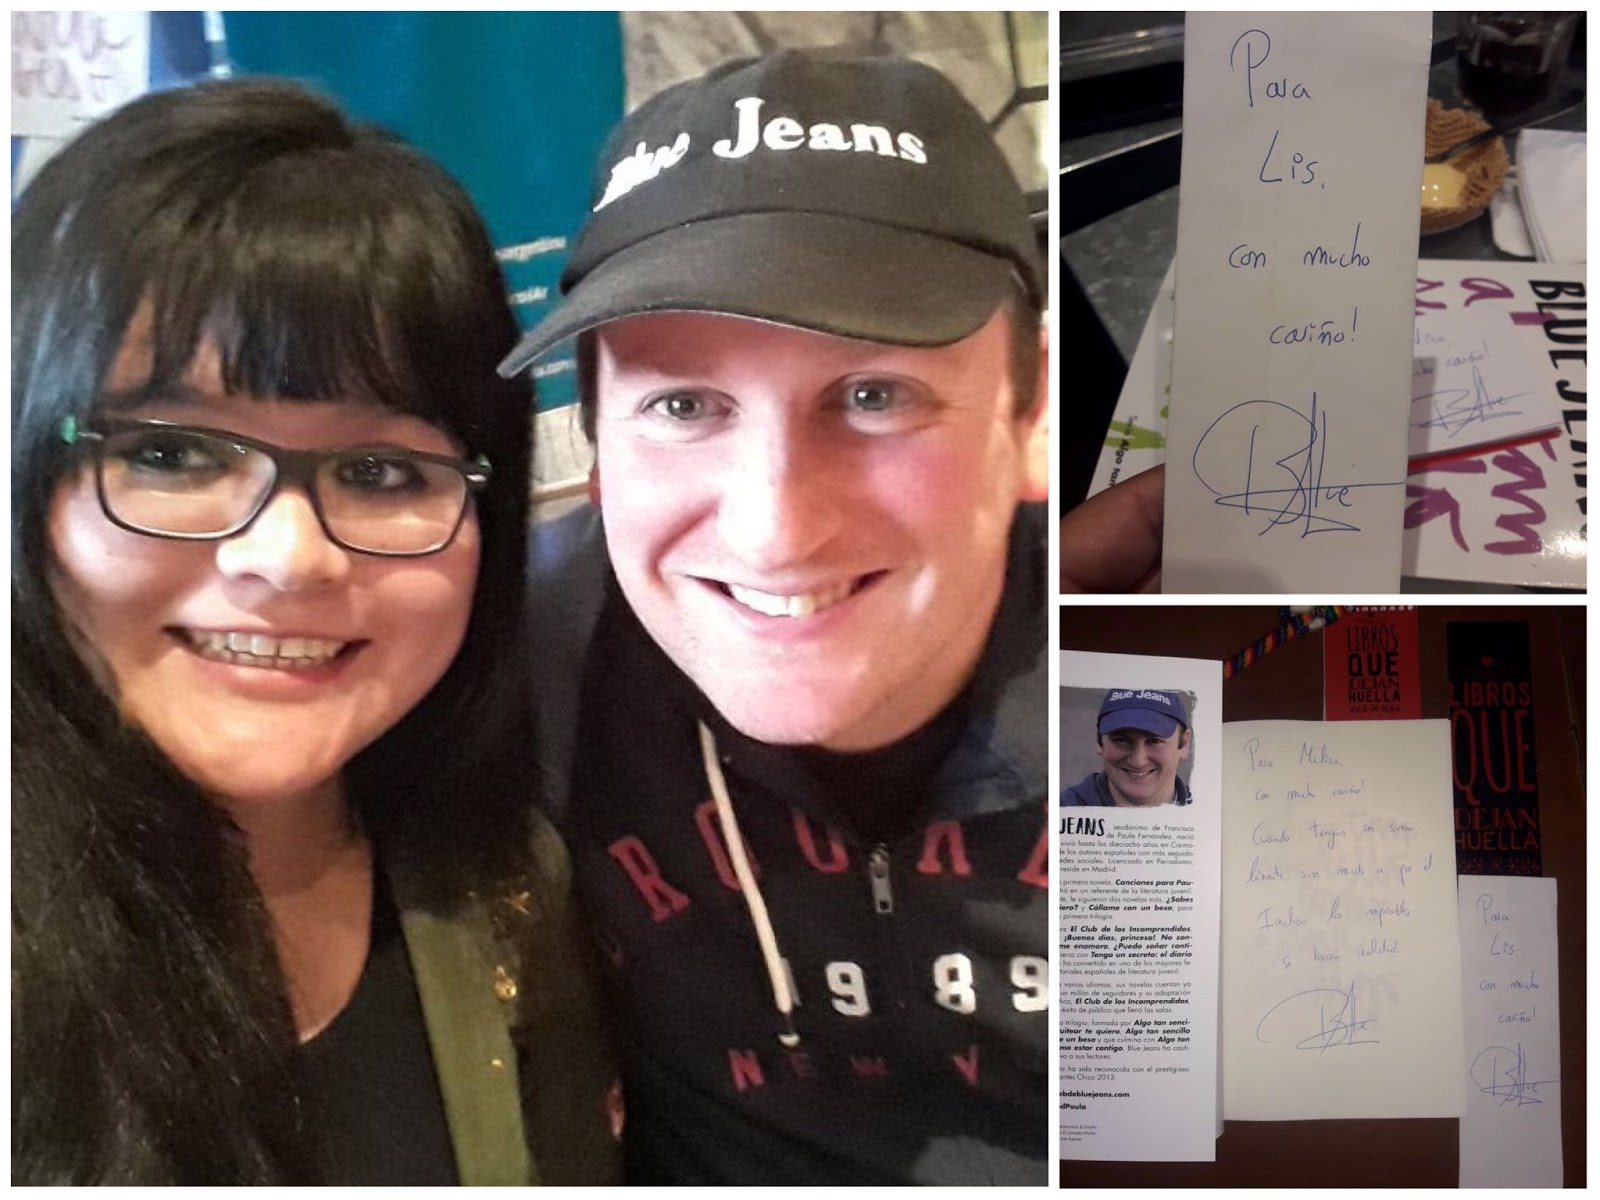 Blue Jeans
argentina
BROOKL
1989
NEW Y
Para
Lis,
con mucho
cariño!
Blue
BLUE JEANS
cariño!
Blue
LIBROS
QUE
DEJAN
HUELLA
LIBROS
QUE
DEJAN
HUELLA
Blue Jeans
JEANS, seudónimo de Francisco
de Paula Fernández, nació
vivió hasta los dieciocho años en Carmo-
e los autores españoles con más seguido-
edes sociales. Licenciado en Periodismo,
reside en Madrid.
primera novela, Canciones para Pau-
tió en un referente de la literatura juvenil.
te, le siguieron dos novelas más, ¿Sabes
iero? y Cállame con un beso, para
primera trilogía.
e El Club de los Incomprendidos,
¡Buenos días, princesa!, No son-
me enamoro, ¿Puedo soñar conti-
ierra con Tengo un secreto: el diario
ha convertido en uno de los mayores fe-
toriales españoles de literatura juvenil.
varios idiomas, sus novelas cuentan ya
un millón de seguidores y su adaptación
fica, El Club de los Incomprendidos,
éxito de público que llenó las salas.
a trilogía, formada por Algo tan senci-
uitear te quiero, Algo tan sencillo
e un beso y que culmina con Algo tan
mo estar contigo, Blue Jeans ha cauti-
vo a sus lectores.
ra ha sido reconocida con el prestigioso
antes Chico 2013.
ebdebluejeans.com
dPaula
Para Melisa,
con mucho cariño!
Cuando tengas un sueño,
lánzate sin miedo a por él.
Incluso los imposibles
se hacen realidad.
Blue
Para
Lis,
con mucho
cariño!
Blue